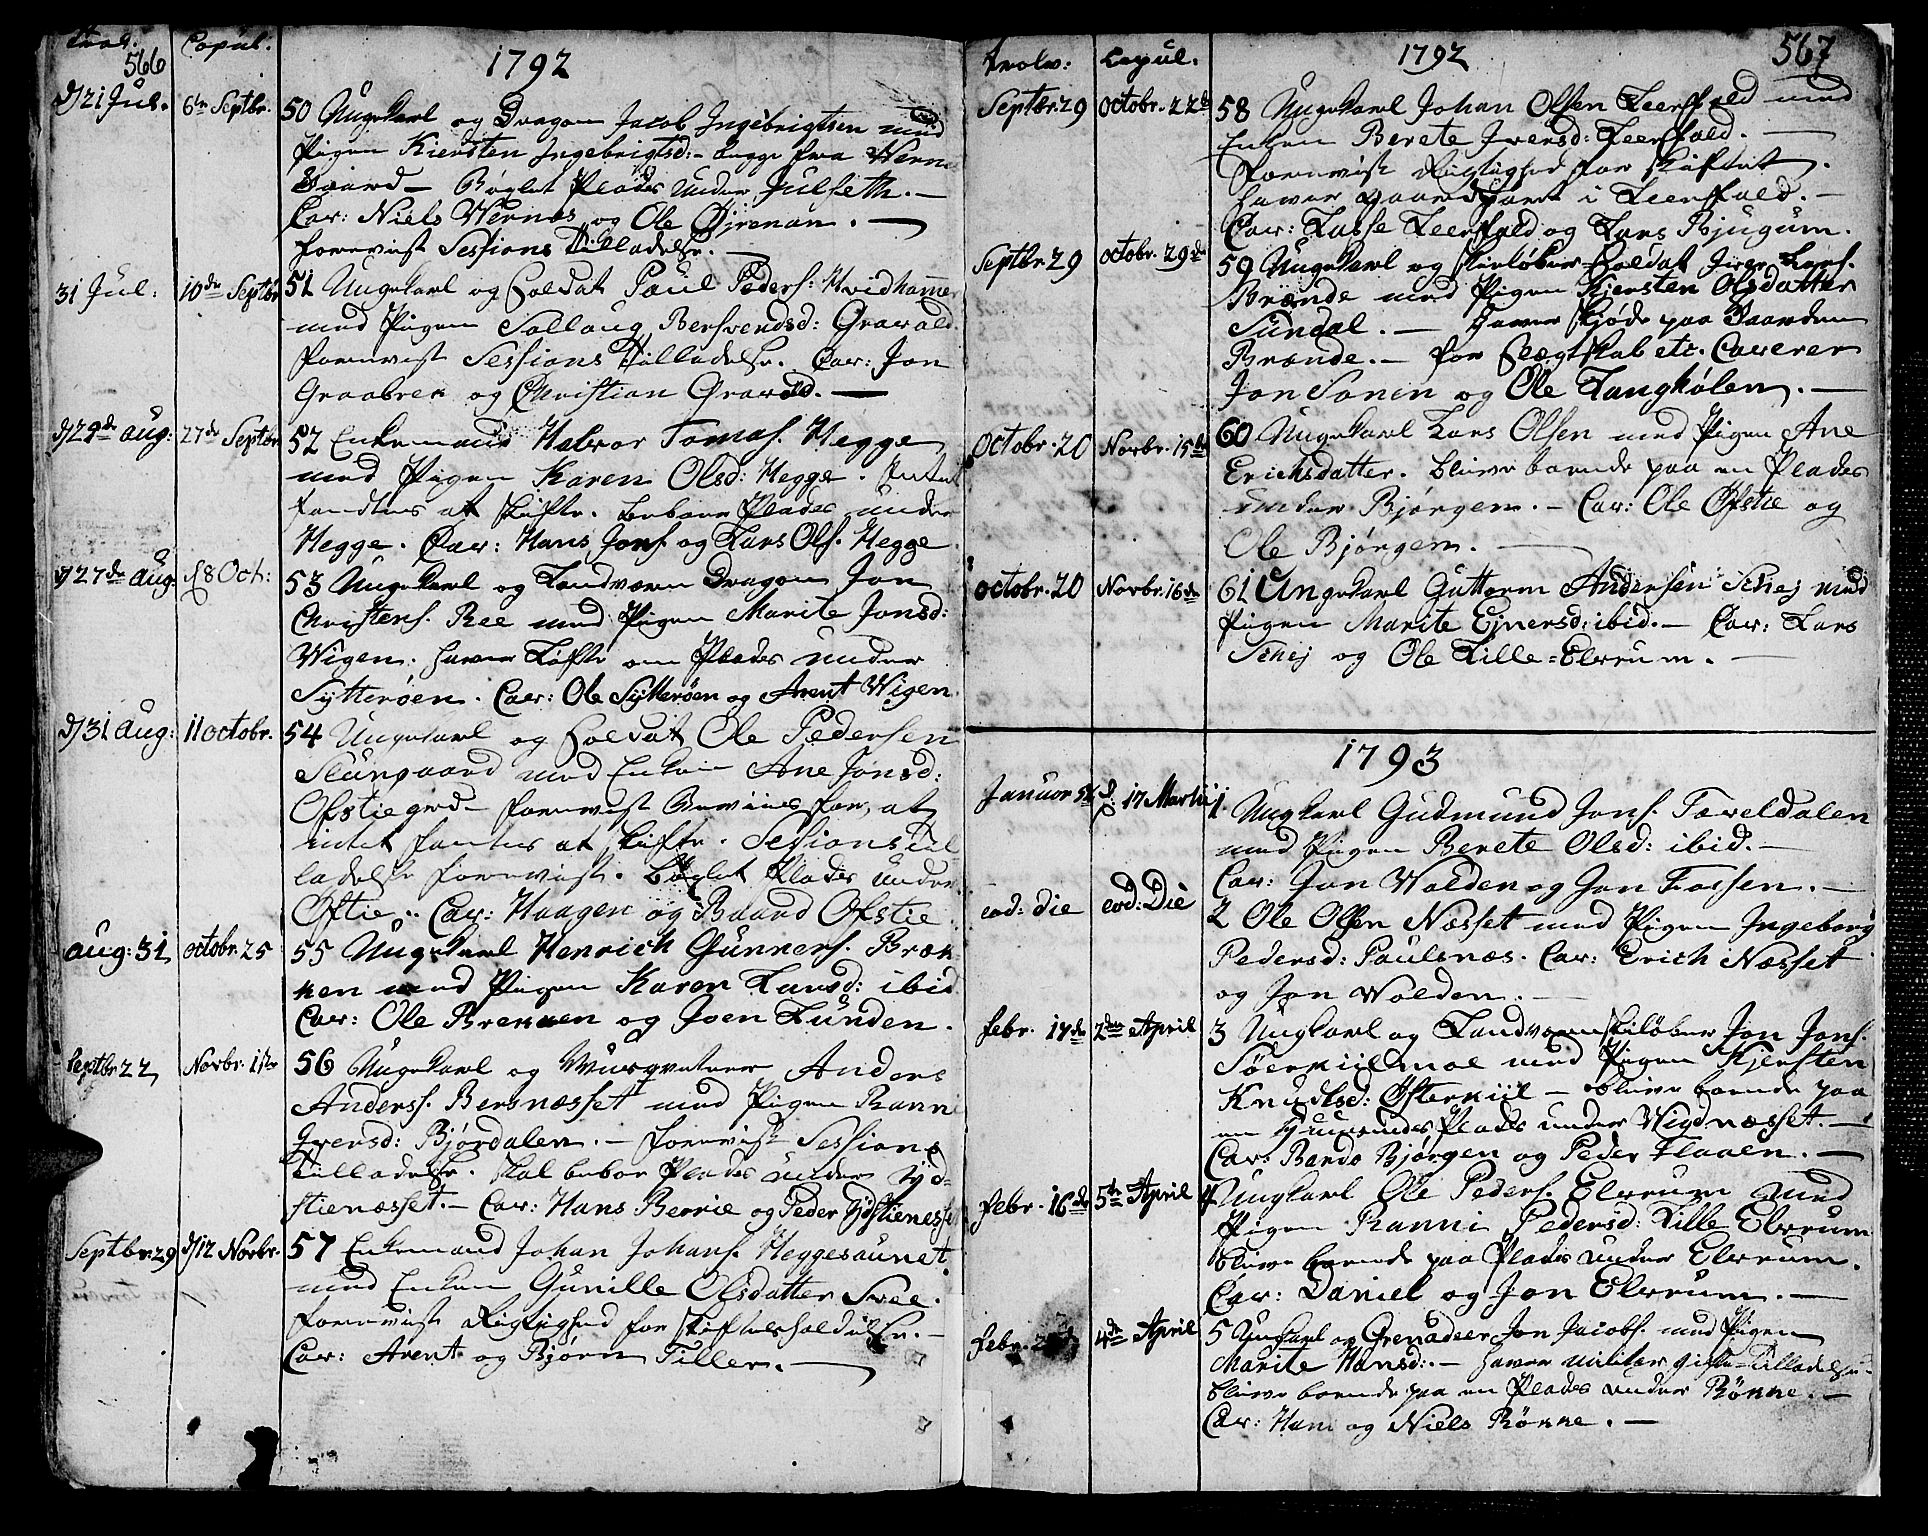 Trol. Copul:
566
1792
d/21 Jul. 6te Septbr. 50 Ungekarl og Dragon Jacob Ingebrigtsen med
Pigen Kiersten Ingebrigtsd: begge fra Wernes
Gaard — Bøglet Plades under Julseth. —
Cav: Niels Wernæs og Ole Øjrenan. —
forevist Sessions Tilladelse. —
31 Jul: 10de Septbr 51 Ungekarl og Soldat Paul Peders: Hvidhammer
med Pigen Sollaug Bersvendsd: Gravald.
forevist Sessions Tilladelse. Cav: Jon
Graabrek og Christian Gravald. —
d/29de aug: 27de Septbr 52 Enkemand Halvor Tomas. Hegge
med Pigen Karen Olsd: Hegge. Intet
fandtes at skifte. beboer Plades under
Hegge. Cav: Hans Jons. og Lars Ols. Hegge
d/27de Aug: d 8 Oct: 53 Ungekarl og Landværn Dragon Jon
Christens. Ree med Pigen Marite Jonsd:
Wigen. haver Løfte om Plades under
Sytterøen. Cav: Ole Sytterøen og Arent Wigen.
d/31 aug: 11 octobr. 54 Ungekarl og Soldat Ole Pedersen
Slungaard med Enken Ane Jonsd:
Ofstiegrd — forevist Beviis for, at
intet fantes at skifte. Sessions til
ladelse forevist. Bøglet Plades under
Øftie. Cav: Haagen og Baard Ofstie.
aug: 31 octobr. 25 55 Ungekarl Henrich Gunners. Bræk
ken med Pigen Karen Larsd: ibid.
Cav: Ole Brekken og Joen Lunden.
Septbr 22 Novbr. 1ste 56 Ungekarl og Musqveteer Anders
Anderss. Bersnæsset med Pigen Ranni
Iversd: Bjørdalen. — forevist Sessions
Tilladelse. skal beboe Plades under Fyd-
stienæsset. — Cav: Hans Berrie og Peder Fydstienesset
Septbr. 29 d/12 Novbr. 57 Enkemand Johan Johans. Heggesaunet.
med Enken Gunille Olsdatter Svee.
forevist Rigtighed for skifteholdelse. —
Cav: Arent og Bjørn Tiller. —
Trolov: Copul. 1792 567
Septbr. 29 Octobr. 22de 58 Ungekarl Johan Olsen Leerfald med
Enken Berete Iversd: Leerfald. —
forevist Rigtighed for skiftet.
haver gaardpart i Leerfald. —
Cav: Lasse Leerfald og Lars Bjugum.
Septbr 29 octobr. 29de 59 Ungekarl og skieløber Soldat Iver Lars.
Brænde med Pigen Kjersten Olsdatter
Sundal. — haver skjøde paa Gaarden
Brænde. — for Slægtskab etc. Caverer
Jon Sonen og Ole Langhølen. —
Octobr. 20 Novbr. 15de 60 Ungekarl Lars Olsen med Pigen Ane
Erichsdatter. blive boende paa en Plades
under Bjørgen. — Cav: Ole Øfstie og
Ole Bjørgen. —
octobr. 20 Novbr. 16de 61 Ungekarl Guttorm Andersen Schej med
Pigen Marite Ejnersd: ibid. — Cav: Lars
Schej og Ole Lille-Elvrum. —
1793
Januar 5te d: 17 Martii 1 Ungkarl Gudmund Jons. Tæveldalen
med Pigen Berete Olsd: ibid. —
Cav: Jon Wolden og Jon Fossen. —
eod: die eod: Die 2 Ole Olsen Næsset med Pigen Ingeborg
Pedersd: Paulsnæs. Cav: Erich Næsset
og Jon Wolden. —
febr. 17de 2den April 3 Ungkarl og Landværn skiløber Jon Jons.
Søerkiilmoe med Pigen Kjersten
Knudtsd: Østerkiil — blive boende paa
en Plades under Wigdnæsset. —
Cav: Bardo Bjørgen og Peder Flaaen. —
Febr. 16de 5te April 4 Ungkarl Ole Peders. Elvrum med
Pigen Ranni Pedersd: Lille Elvrum
blive boende paa Plades under Elvrum.
Cav: Daniel og Jon Elvrum. —
febr. 4de April 5 Ungkarl og Grenadeer Jon Jacobs. med Pigen
Marite Hansd: — haver militær gifte-Tilladelse.
blive boende paa en Plades under Rønne. —
Cav: Hans og Niels Rønne. —